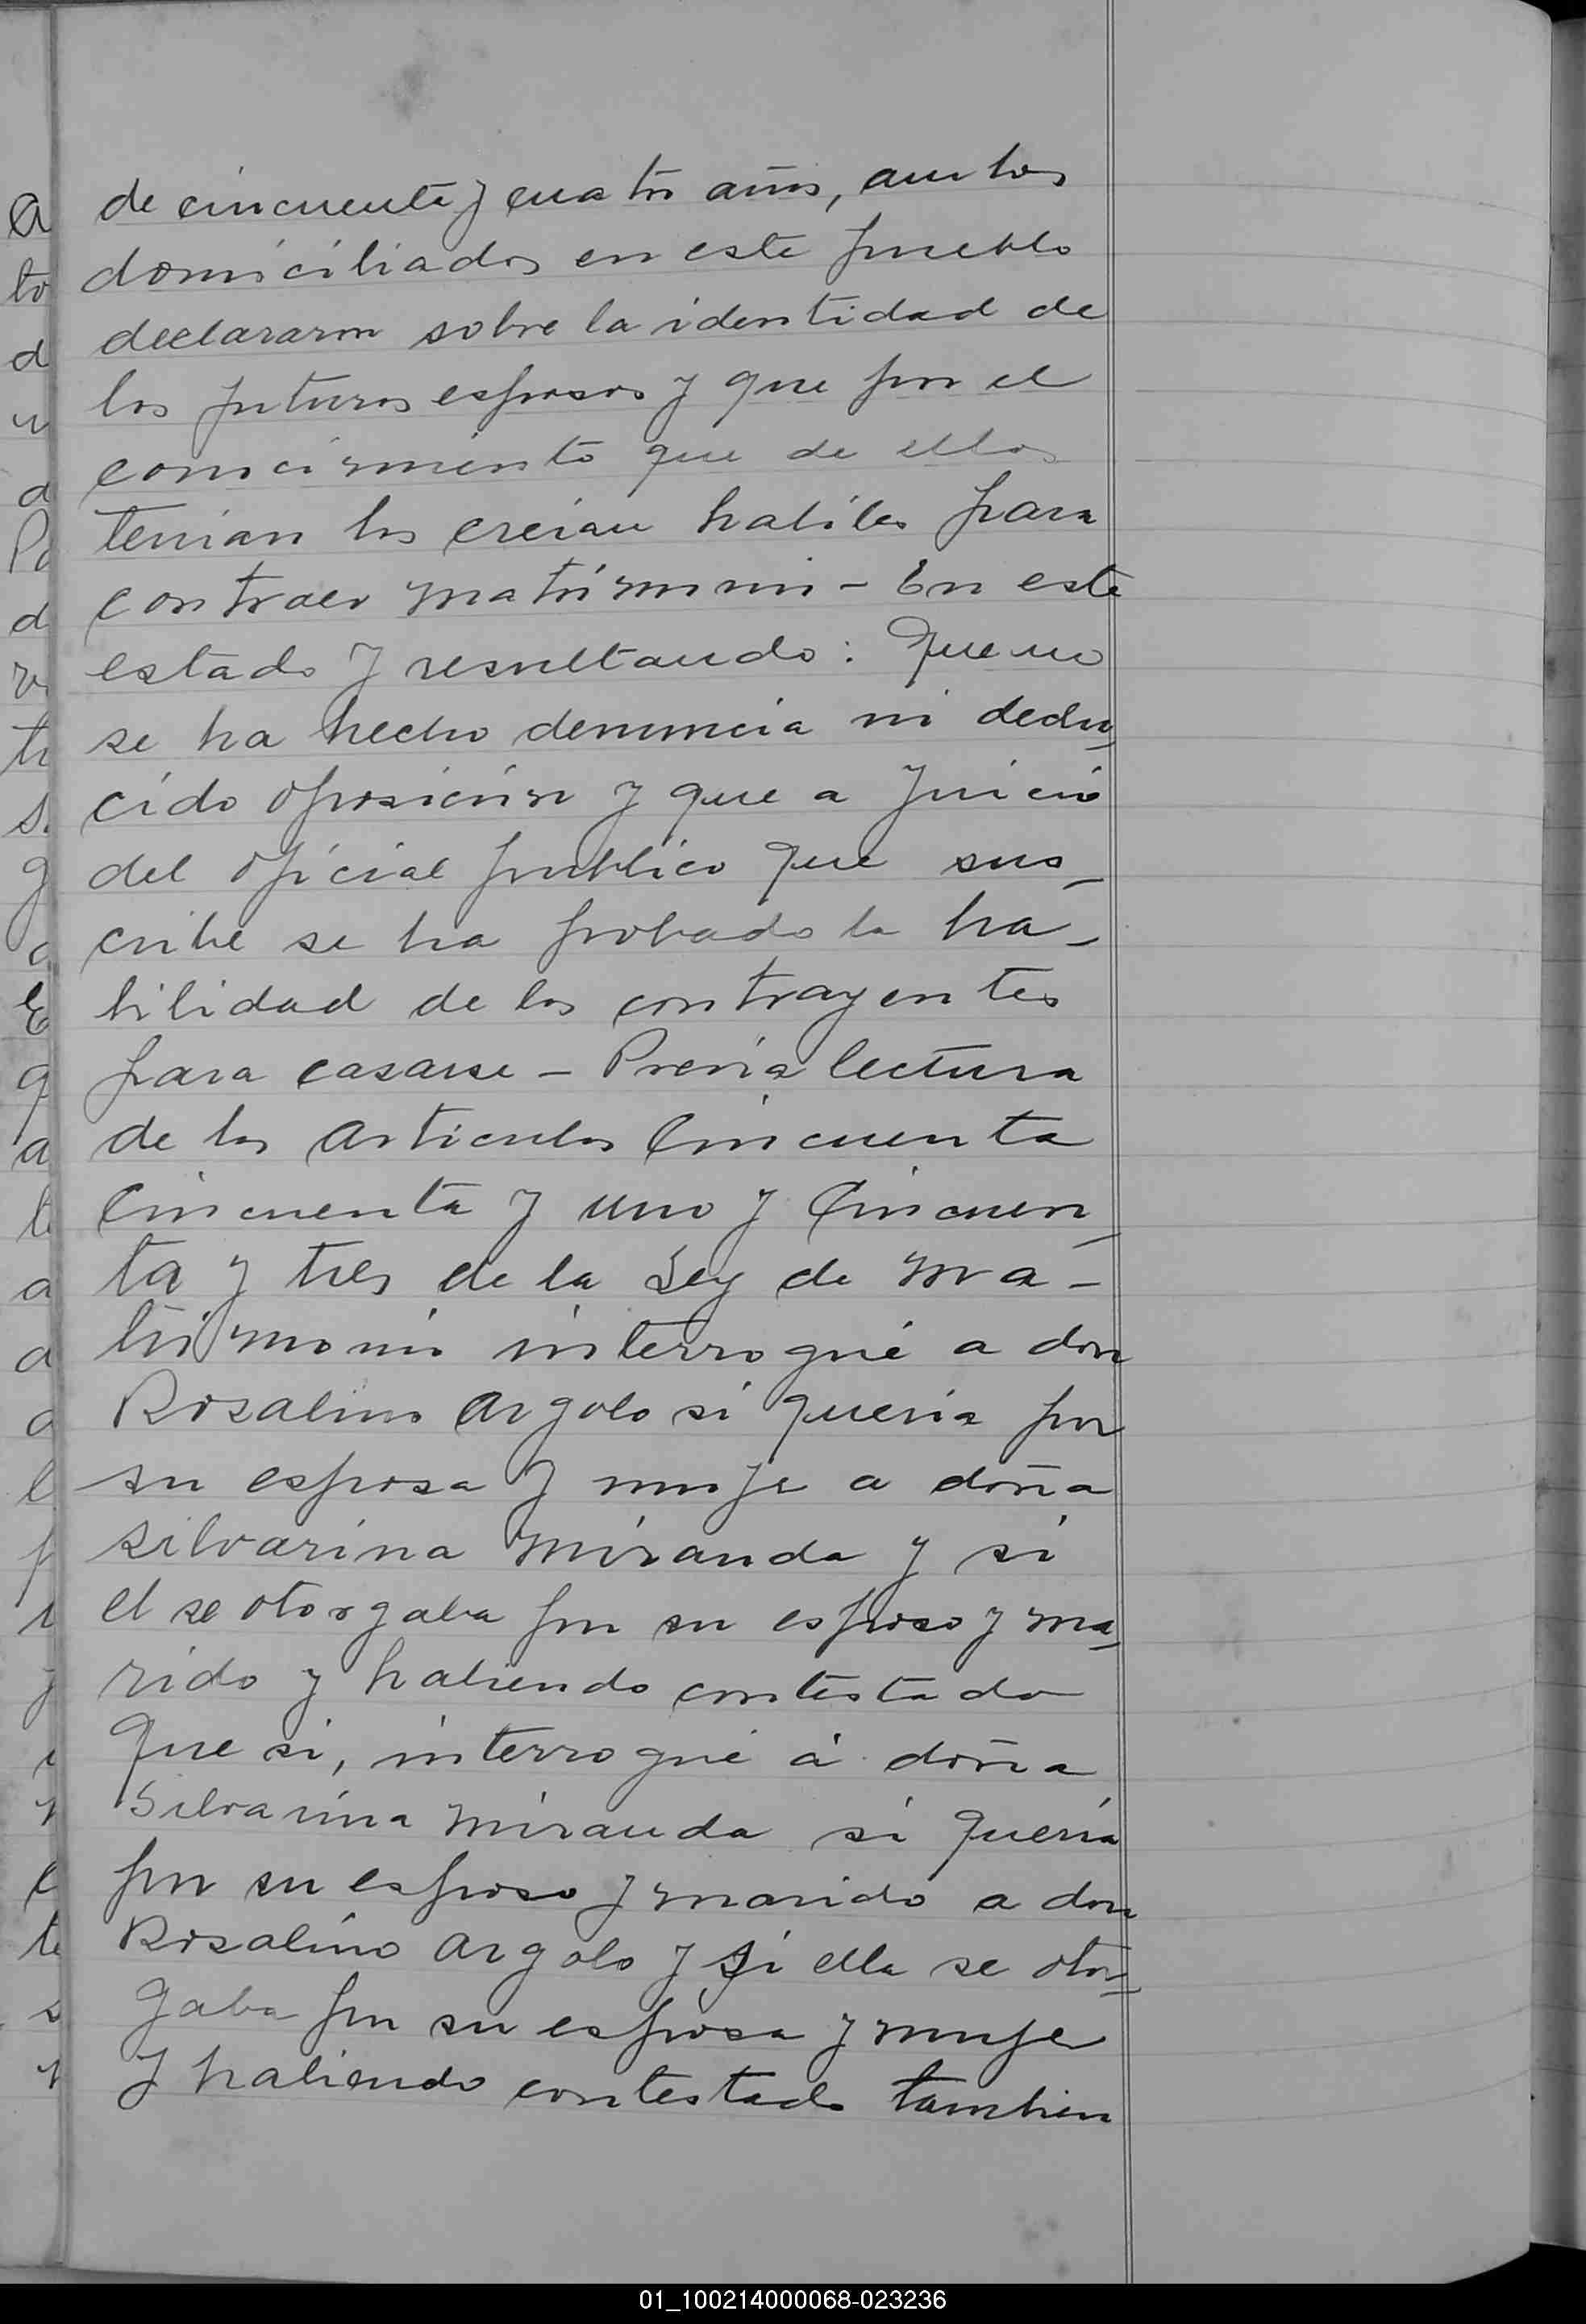 de cincuenta y cuatro años, ambos
domiciliados en este pueblo
declararon sobre la identidad de
los futuros esposos y que por el
conocimiento que de ellos
tenian los creian habiles para
contraer matrimonio - En este
estado y resultando: Que no
se ha hecho denuncia ni dedu_
cido oposicion y que a juicio
del oficial publico que sus_
cribe se ha probado la ha_
bilidad de los contrayentes
para casarse - Previa lectura
de los articulos Cincuenta
Cincuenta y uno y Cincuen_
ta y tres de la Ley de ma-
trimonio interrogué a don
Rosalino Argolo si queria por
su esposa y muje a doña
Silvarina Miranda y si
el se otorgaba por su esposo y ma_
rido y habiendo contestado
que si, interrogué á doña
Silvarina Miranda si queria
por su esposo y marido a don
Rosalino Argolo y si ella se otor_
gaba por su esposa y mujer
y habiendo contestado tambien
01_100214000068-023236